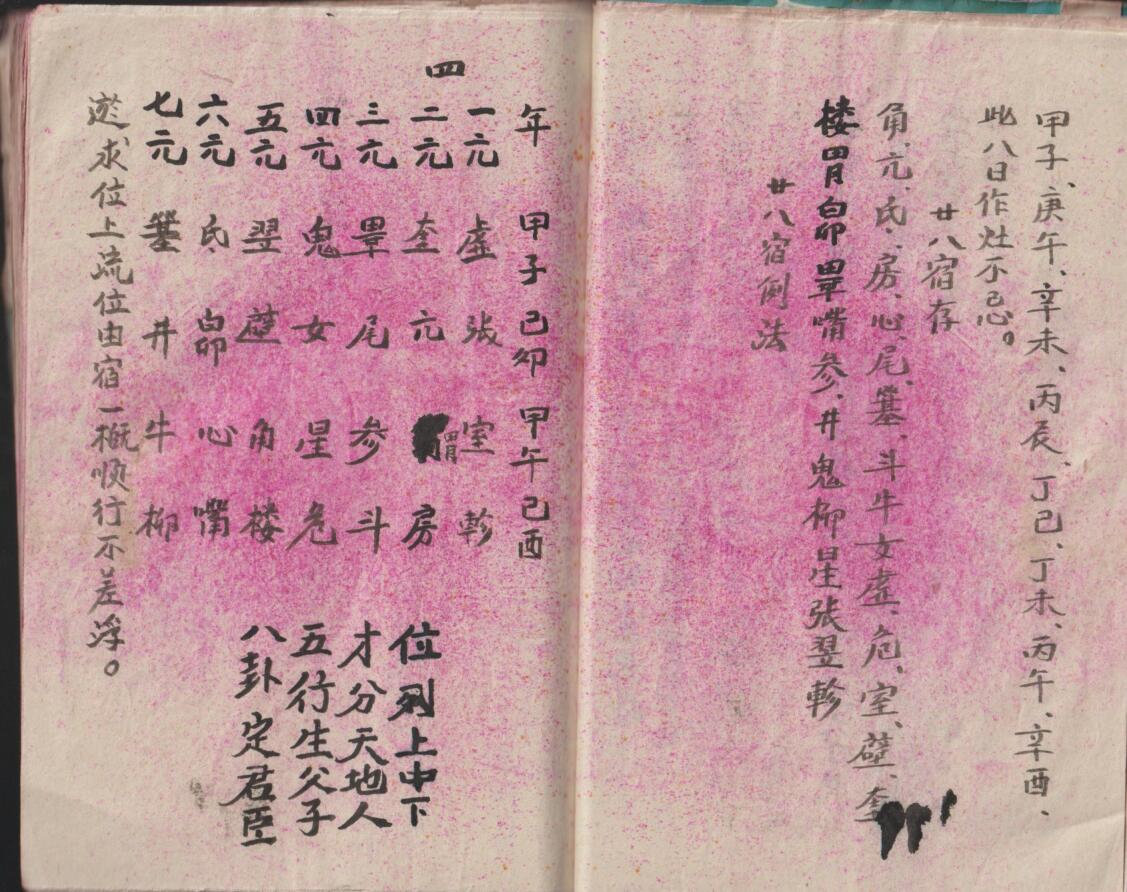 甲子、庚午、辛未、丙辰、丁己、丁未、丙午、辛酉、
此八日作灶不忌。
廿八宿存
角、亢、氐、房、心、尾、箕、斗牛女虚、危。室、壁、奎
楼胃昴畢嘴参、井鬼柳星张翌軫
廿八宿例法
四
年 甲子 己卯 甲午 己酉
一元 虚 张 室 軫
二元 奎 亢 胃 房
三元 畢 尾 参 斗
四元 鬼 女 星 危
五元 翌 壁 角 楼
六元 氐 昴 心 嘴
七元 箕 井 牛 柳
位列上中下
才分天地人
五行生父子
八卦定君臣
逆求位上流位由宿一概顺行不差浮。